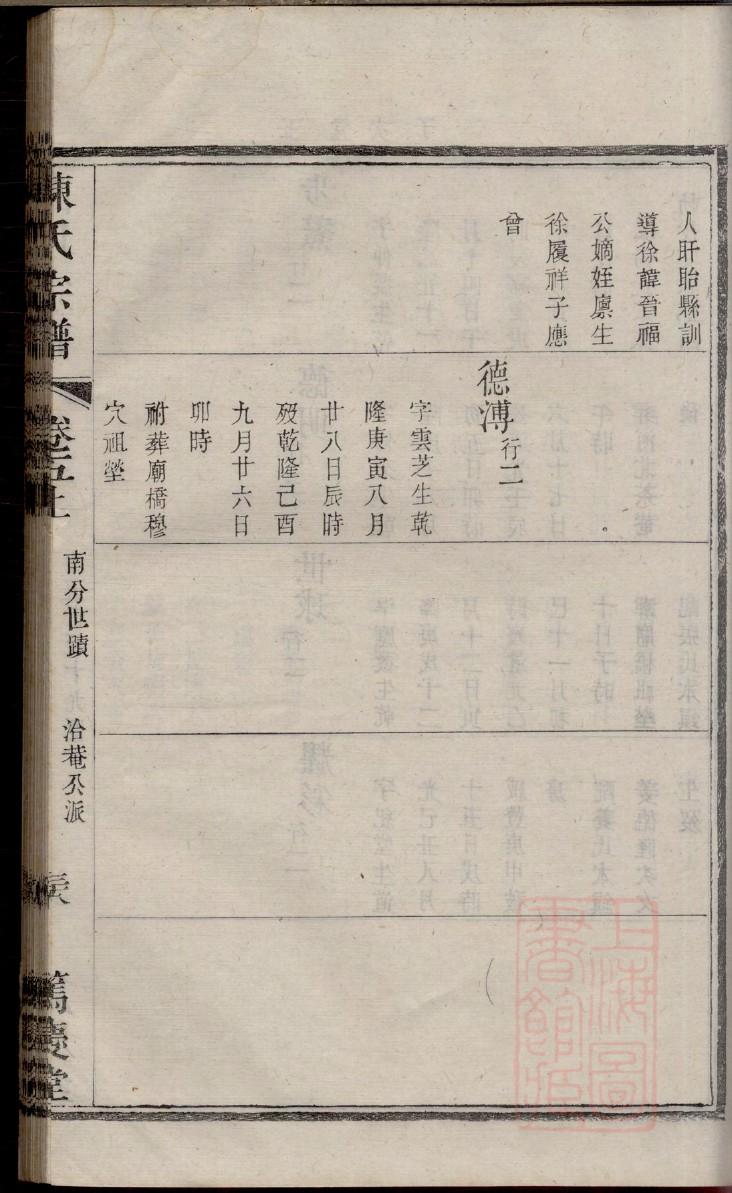 人盱眙縣訓
導徐諱晉福
公嫡姪廪生
徐履祥子應
曾
德漙行二
字雲芝生乾
隆庚寅八月
廿八日辰時
歿乾隆己酉
九月廿六日
卯時
祔葬廟橋穆
穴祖塋
陳氏宗譜
卷五上
南分世蹟
洽菴公派
篤慶堂
上海圖書館藏